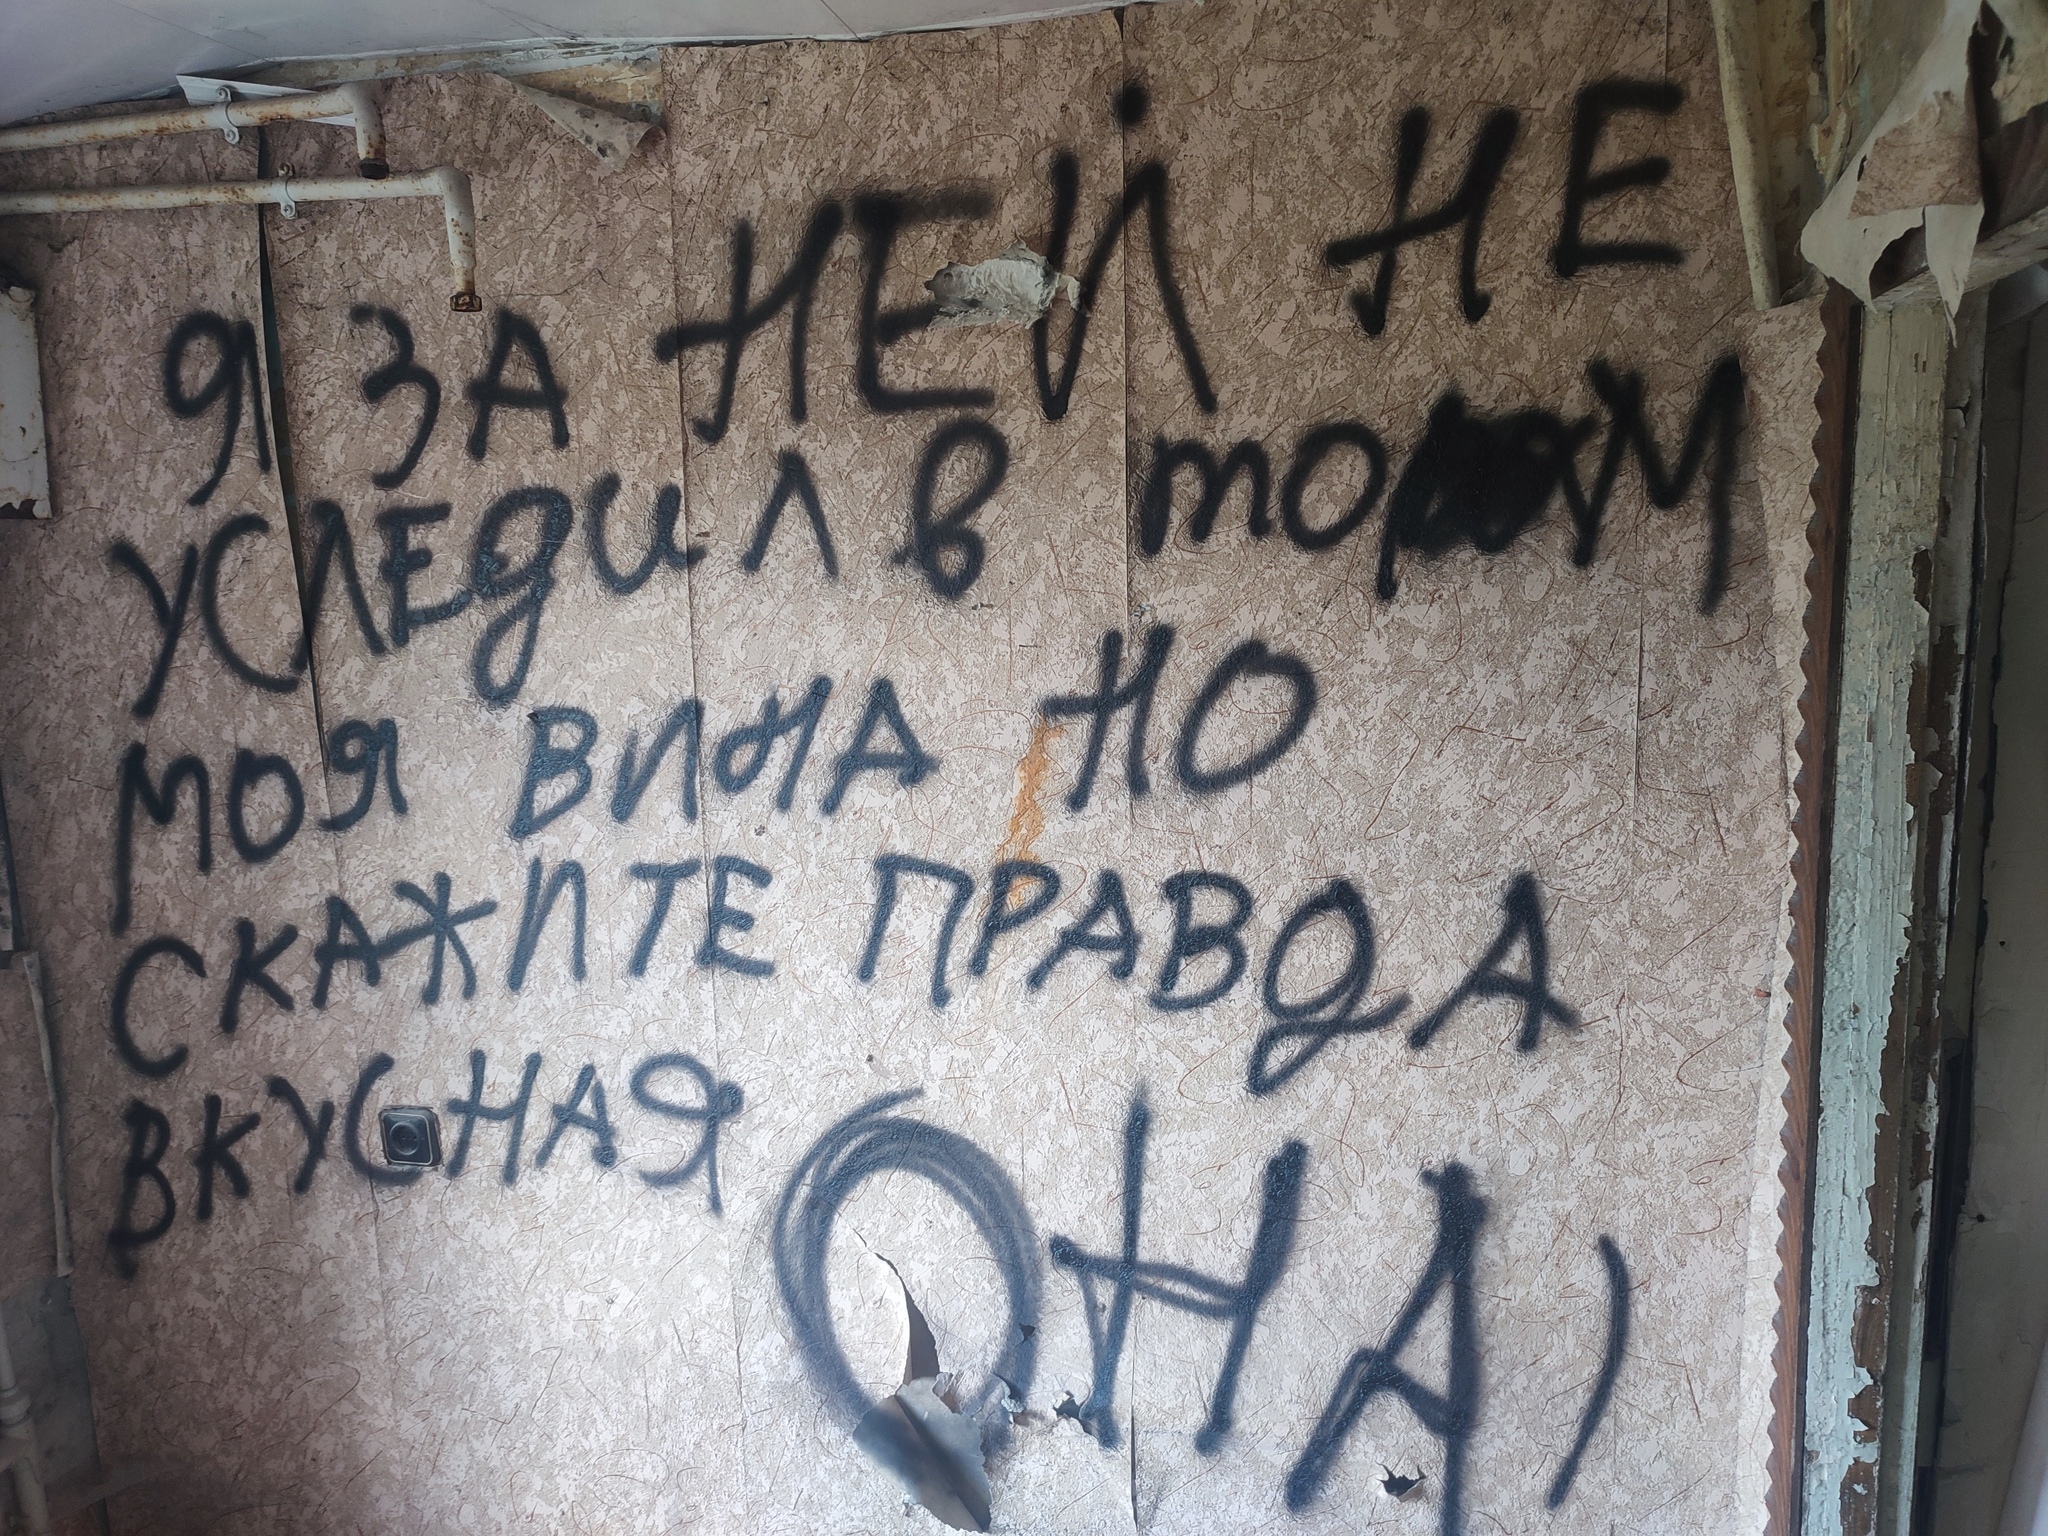 Я ЗА НЕЙ НЕ
УСЛЕДИЛ В ТОМ
МОЯ ВИНА НО
СКАЖИТЕ ПРАВДА
ВКУСНАЯ ОНА)